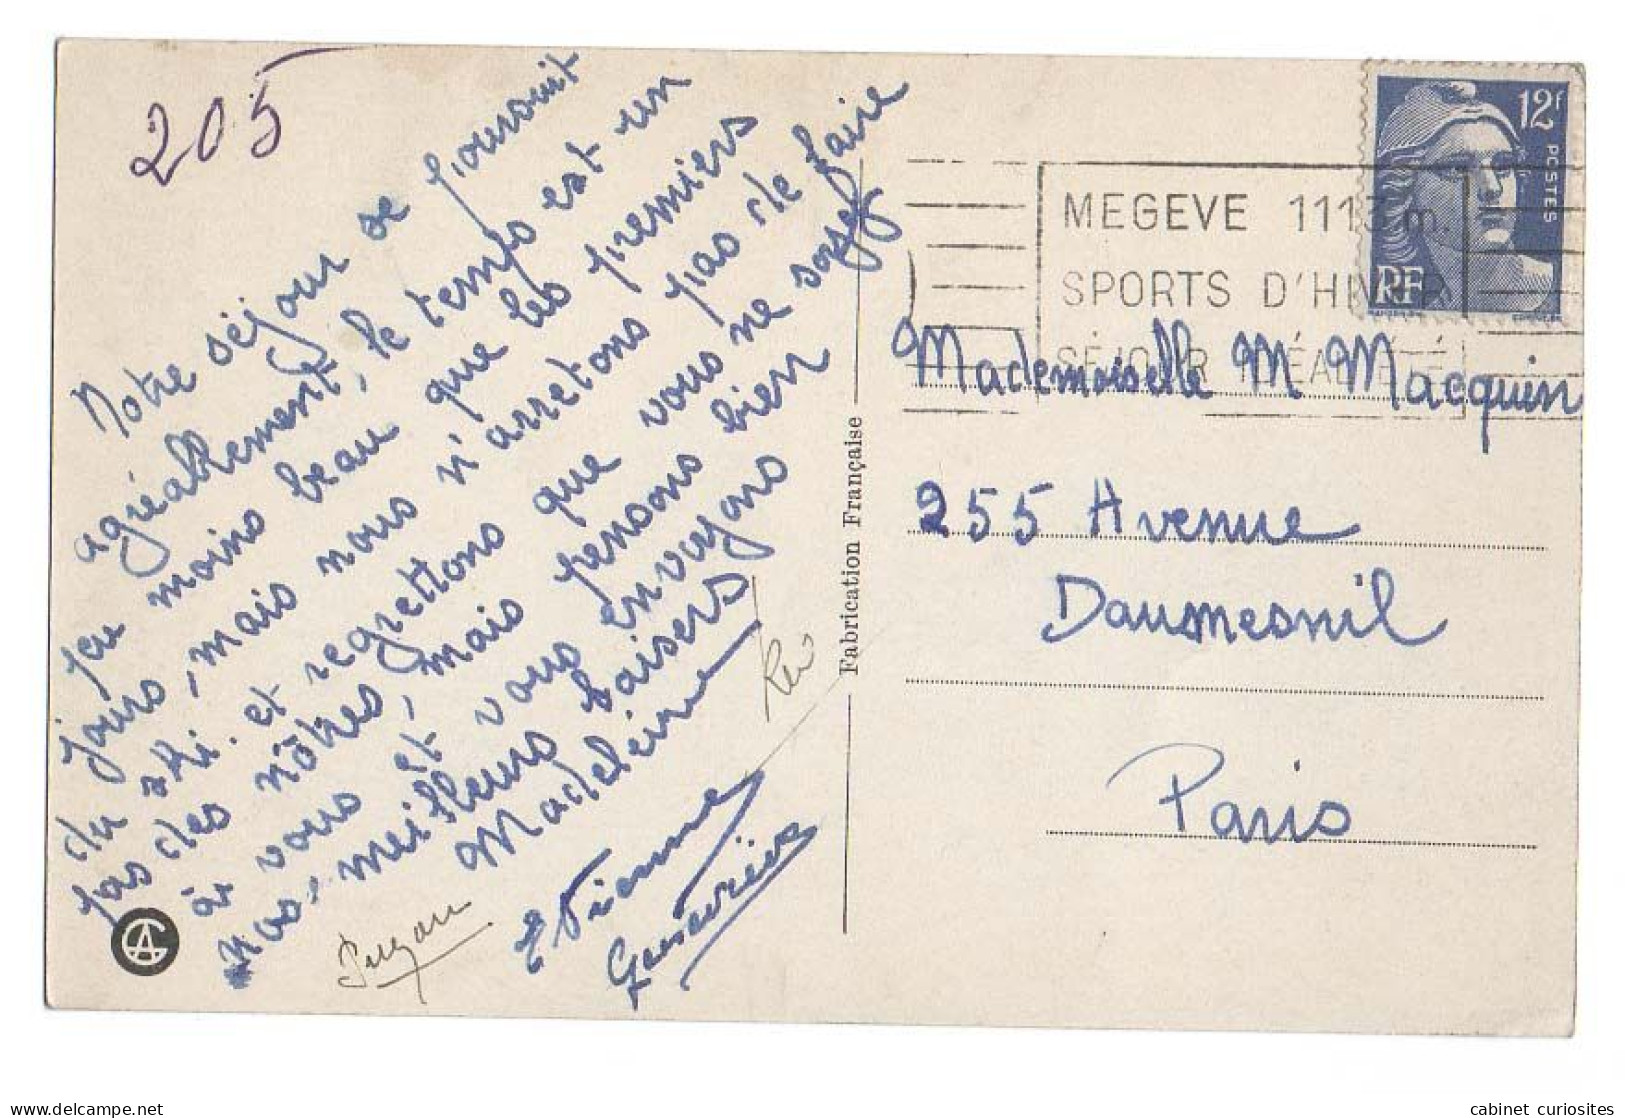 205
Notre séjour se poursuit
agréablement, le temps est un
peu moins beau que les premiers
jours, mais nous n'arretons pas de faire
du ski. et regrettons que vous ne soyez
pas des nôtres, mais pensons bien
à vous et vous envoyons
nos meilleurs baisers
Madeleine
Etienne
Geneviève
Fabrication Française
12F
POSTES
RF
MEGEVE 1113 m.
SPORTS D'HIVER
SÉJOUR IDÉAL D'ÉTÉ
Mademoiselle M Macquin
255 Avenue
Daumesnil
Paris
cabinet curiosites